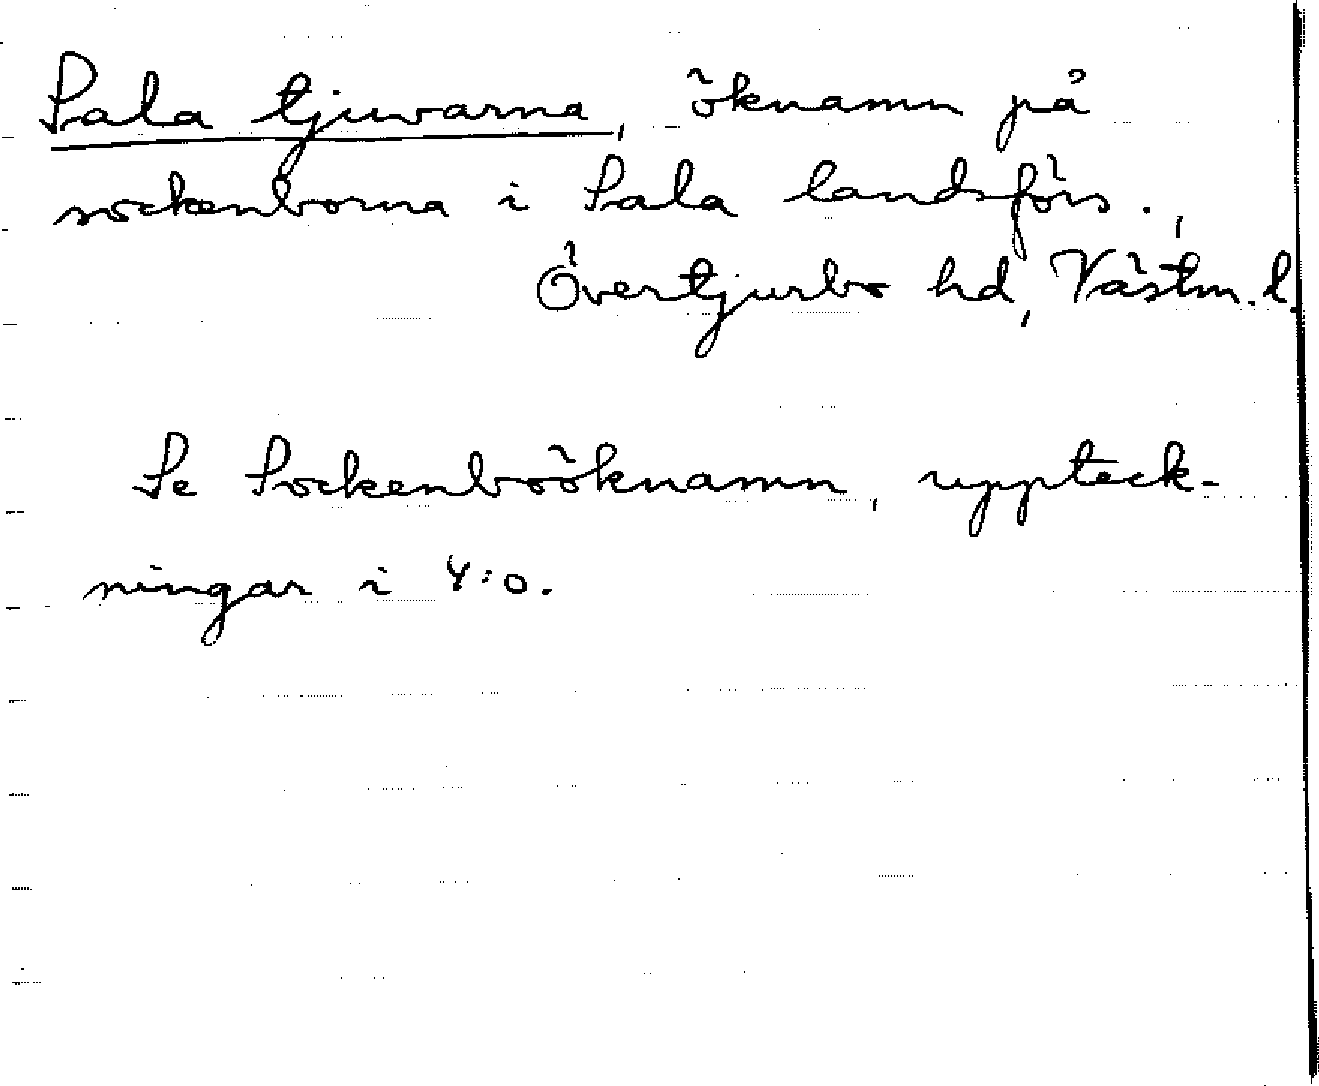 Sala tjuvarna, öknamn på
sockenborna i Sala landsförs.,
Övertjurbo hd, Västm. l.
Se Sockenboöknamn, uppteck-
ningar i 4:o.